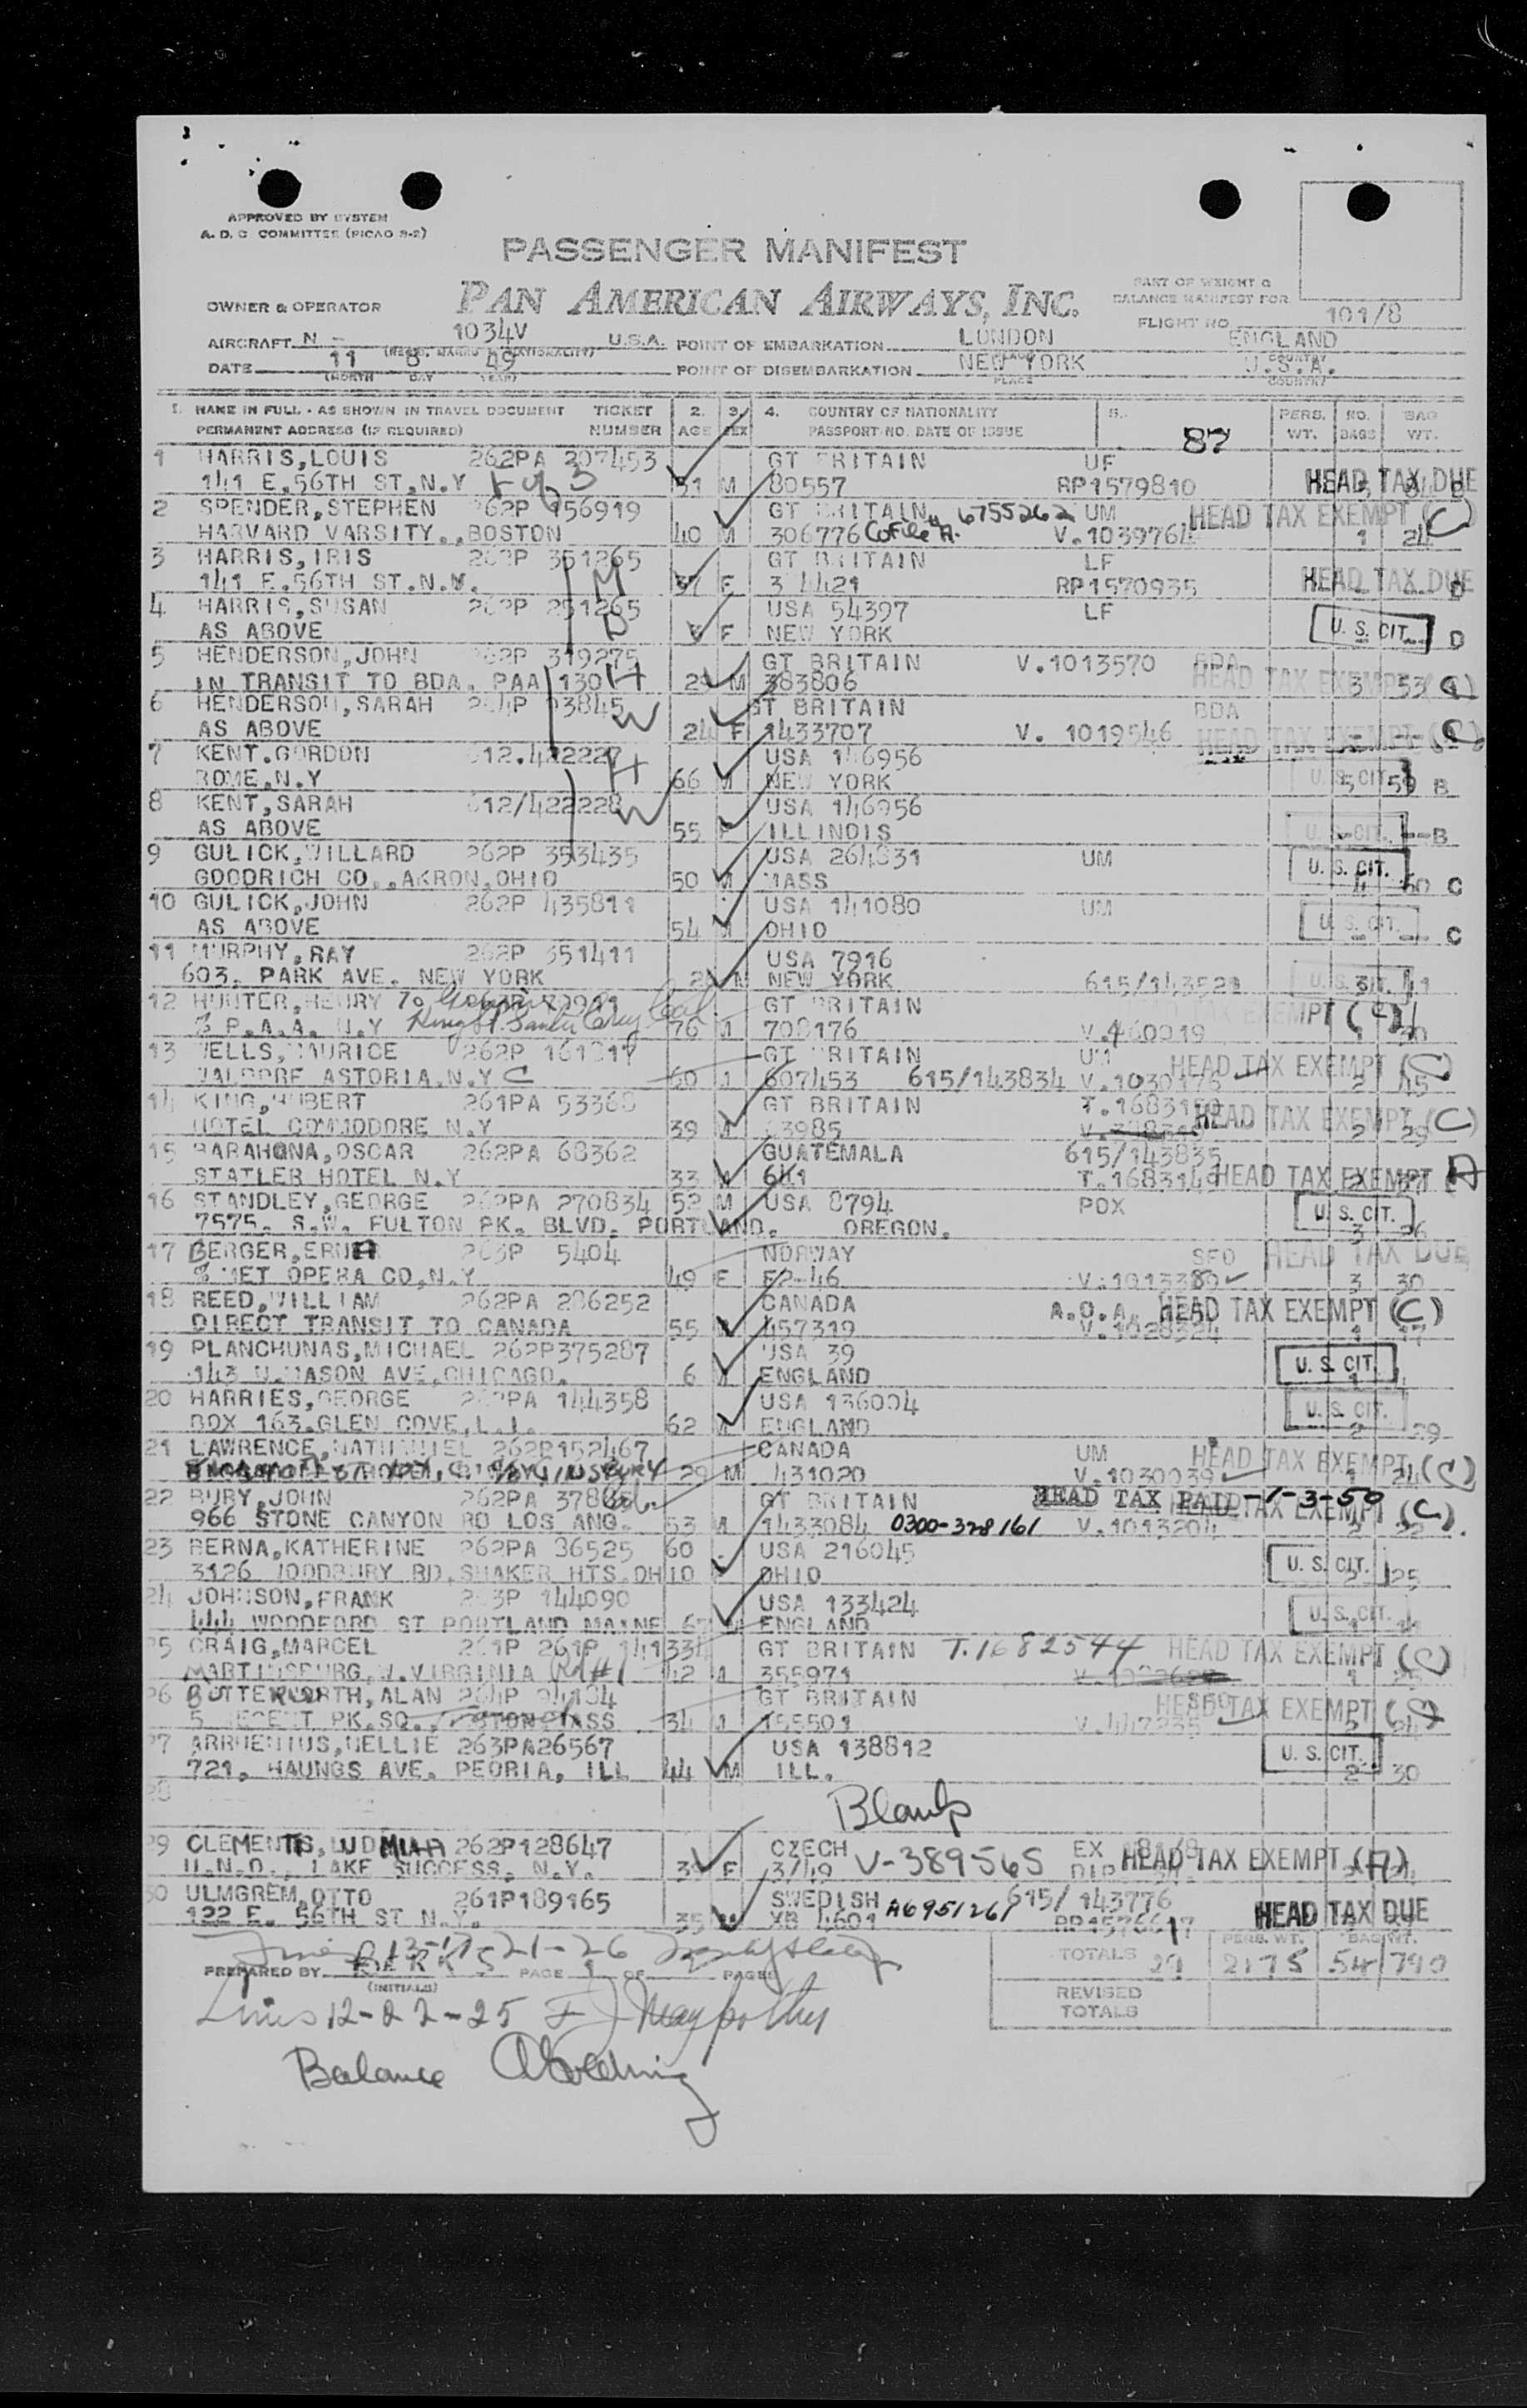 APPROVED BY SYSTEM
A. D. C COMMITTEE (PICAO S-2)
PASSENGER MANIFEST
PART OF WEIGHT &
BALANCE MANIFEST FOR
OWNER & OPERATOR PAN AMERICAN AIRWAYS, INC.
FLIGHT NO. 101/8
AIRCRAFT N - 1034V U.S.A. POINT OF EMBARKATION LONDON ENGLAND
DATE 11 8 49 POINT OF DISEMBARKATION NEW YORK U.S.A.
(MONTH DAY YEAR) PLACE COUNTRY
1. NAME IN FULL - AS SHOWN IN TRAVEL DOCUMENT TICKET 2. 3. 4. COUNTRY OF NATIONALITY 5. PERS. NO. BAG
PERMANENT ADDRESS (IF REQUIRED) NUMBER AGE SEX PASSPORT NO. DATE OF ISSUE 87 WT. BAGS WT.
1 HARRIS, LOUIS 262PA 207453 GT BRITAIN UF
141 E.56TH ST.N.Y 51 M 80557 RP1579810 HEAD TAX DUE
2 SPENDER, STEPHEN 262P 156919 GT BRITAIN 6755262 UM HEAD TAX EXEMPT (C)
HARVARD VARSITY., BOSTON 40 M 306776 V.103976 1 24
3 HARRIS, IRIS 351265 GT BRITAIN LF
141 E.56TH ST.N.Y. 37 F RP1570935 HEAD TAX DUE D
4 HARRIS, SUSAN 262P 251265 USA 54397 LF
AS ABOVE F NEW YORK U. S. CIT. D
5 HENDERSON, JOHN 262P 319275 GT BRITAIN V.1013570 BDA
IN TRANSIT TO BDA. PAA 130 H M 383806 HEAD TAX EXEMPT 3 53
6 HENDERSON, SARAH W GT BRITAIN BDA
AS ABOVE 24 F 1433707 V. 1019546 HEAD TAX EXEMPT (C)
7 KENT. GORDON 612.422227 H USA 146956
ROME, N.Y 66 M NEW YORK U. S. CIT. 5 59 B
8 KENT, SARAH 612/422228 W USA 146956
AS ABOVE 55 F ILLINOIS U. S. CIT. --B
9 GULICK, WILLARD 262P 353435 USA 264831 UM
GOODRICH CO., AKRON, OHIO 50 M MASS U. S. CIT. 4 60 C
10 GULICK, JOHN 262P 435811 USA 141080 UM
AS ABOVE 54 M OHIO U. S. CIT. C
11 MURPHY, RAY 262P 351411 USA 7916
603. PARK AVE. NEW YORK M NEW YORK 615/143521 U. S. CIT. 3 41
12 HUNTER, HENRY GT BRITAIN
% P.A.A. N.Y King St. Santa Cruz Cal. 76 M 708176 V.460019 EXEMPT (C)
13 WELLS, MAURICE 262P GT BRITAIN UM
WALDORF ASTORIA, N.Y C 60 M 607453 615/143834 V.1030176 HEAD TAX EXEMPT (C) 2 45
14 KING, HUBERT 261PA 53368 GT BRITAIN
HOTEL COMMODORE N.Y 39 M HEAD TAX EXEMPT (C) 2 29
15 BARAHONA, OSCAR 262PA 68362 GUATEMALA 615/143835
STATLER HOTEL N.Y 33 M 641 T.1683149 HEAD TAX EXEMPT A
16 STANDLEY, GEORGE 262PA 270834 52 M USA 8794 PDX
7575. S.W. FULTON PK. BLVD. PORTLAND. OREGON. U. S. CIT. 3 36
17 BERGER, ERNA 263P 5404 NORWAY SFO HEAD TAX DUE
% MET OPERA CO, N.Y 49 F F2-46 V.1013380 3 30
18 REED, WILLIAM 262PA 286252 CANADA A.O.A. HEAD TAX EXEMPT (C)
DIRECT TRANSIT TO CANADA 55 M 457319 V.1028324 1 17
19 PLANCHUNAS, MICHAEL 262P375287 USA 39
143 N.MASON AVE, CHICAGO. 6 M ENGLAND U. S. CIT.
20 HARRIES, GEORGE 262PA 144358 USA 136004
BOX 163.GLEN COVE, L.I. 62 M ENGLAND U. S. CIT. 2 29
21 LAWRENCE, NATHANIEL 262P152467 CANADA UM HEAD TAX EXEMPT (C)
29 M 431020 V.1030039 1 24
22 BURY, JOHN 262PA GT BRITAIN HEAD TAX PAID - 1-3-50
966 STONE CANYON RD LOS ANG. 53 M 1433084 0300-328161 V.1013204 HEAD TAX EXEMPT (C)
23 BERNA, KATHERINE 262PA 36525 60 USA 216045
3126 WOODBURY RD, SHAKER HTS. OHIO F OHIO U. S. CIT. 2 25
24 JOHNSON, FRANK 263P 144090 USA 133424
444 WOODFORD ST PORTLAND MAINE M ENGLAND U. S. CIT.
25 CRAIG, MARCEL 261P GT BRITAIN T.1682544 HEAD TAX EXEMPT (C)
MARTINSBURG, W.VIRGINIA 42 M 355971
26 BUTTERWORTH, ALAN GT BRITAIN HEAD TAX EXEMPT
5 REGENT PK.SQ., BOSTON MASS 34 M 155501 V.447235 2 24
27 ARRHENIUS, NELLIE 263PA26567 USA 138812
721, HAUNGS AVE. PEORIA, ILL 44 M ILL. U. S. CIT. 2 30
28 Blank
29 CLEMENTIS, LUDMILA 262P128647 CZECH EX
U.N.O., LAKE SUCCESS, N.Y. F 3/49 V-389565 DIP HEAD TAX EXEMPT (A)
30 ULMGREM, OTTO 261P189165 SWEDISH A6951261 615/ 143776
122 E. 56TH ST N.Y. 35 M XB 4601 HEAD TAX DUE
Lines 13-17-21-26
PREPARED BY PAGE 1 OF PAGES TOTALS 29 PERS. WT. 2175 54 BAG WT. 790
(INITIALS)
REVISED
TOTALS
Lines 12-22-25
Balance